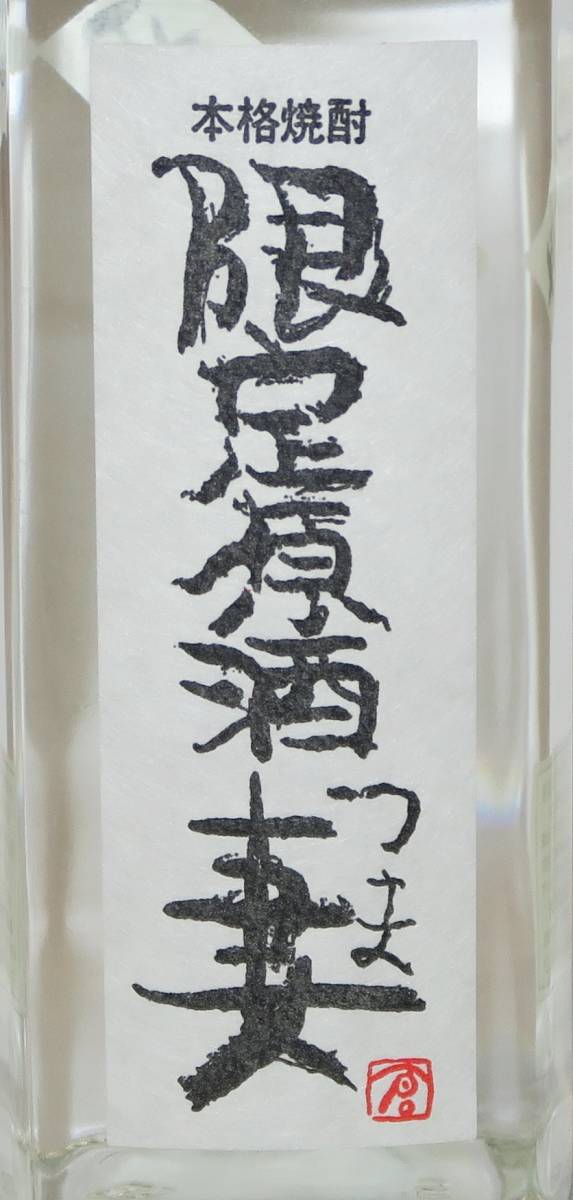 本格焼酎
限定原酒
妻
つま